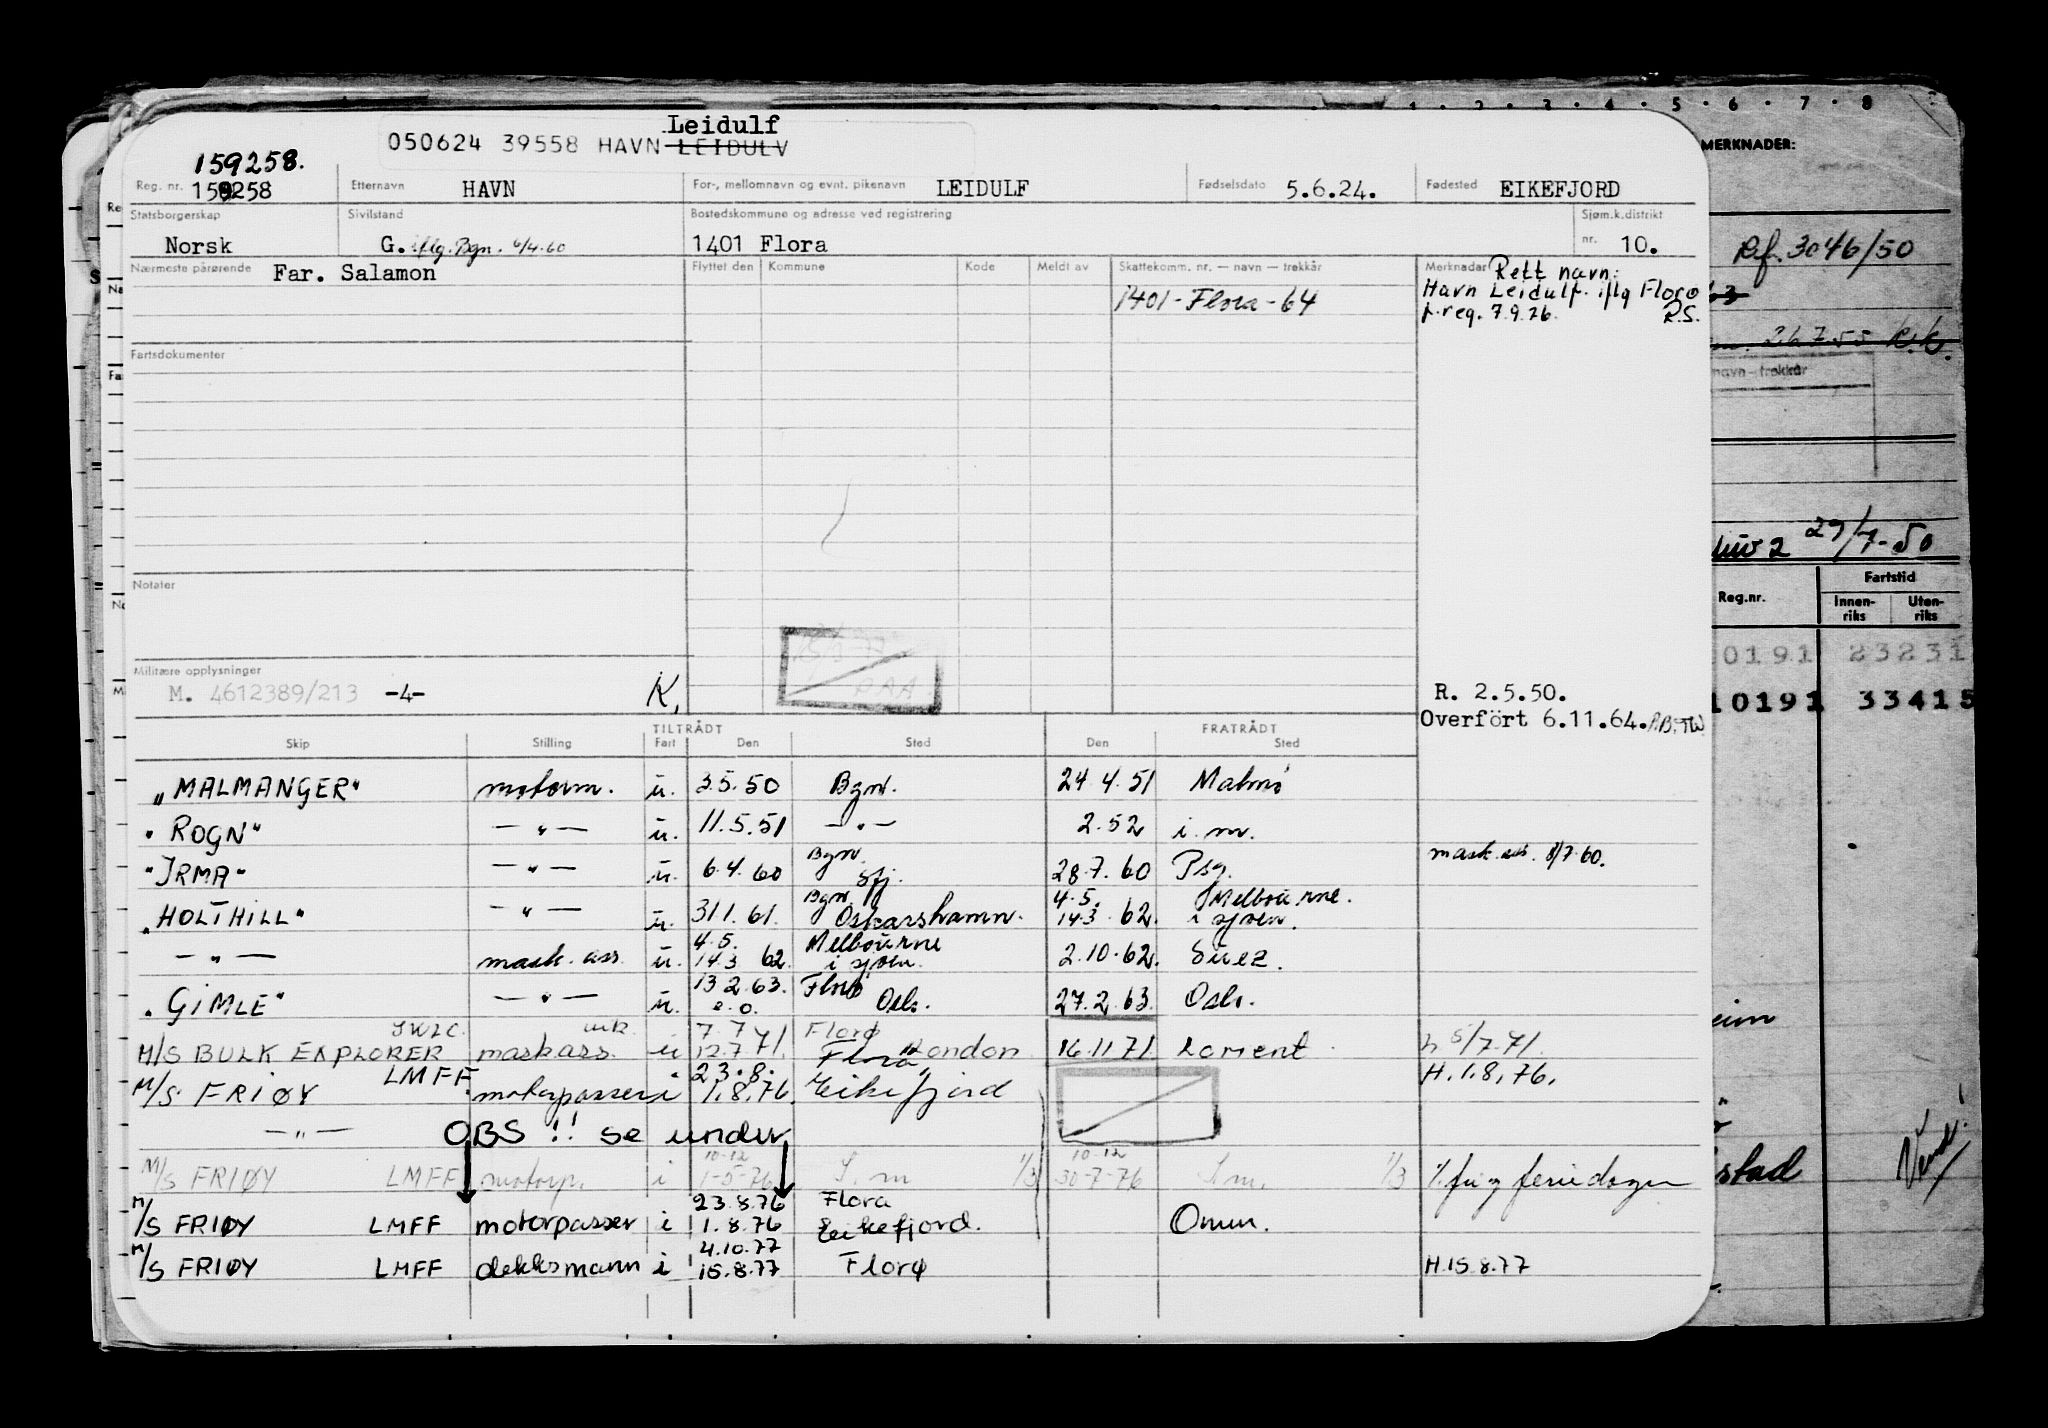 Leidulf
050624 39558 HAVN LEIDULV
159258.
Reg. nr. 159258 Etternavn HAVN For-, mellomnavn og evnt. pikenavn LEIDULF Fødselsdato 5.6.24. Fødested EIKEFJORD
Statsborgerskap Sivilstand Bostedskommune og adresse ved registrering Sjøm.k.distrikt
Norsk G. iflg. Bgn. 6/4.60 1401 Flora nr. 10.
Nærmeste pårørende Far. Salamon Flyttet den Kommune Kode Meldt av Skattekomm. nr. — navn — trekkår Merknader Rett navn:
1401-Flora-64 Havn Leidulf iflg Florø
f.reg. 7.9.76. R.S.
Fartsdokumenter
Notater
Militære opplysninger
M. 4612389/213 -4- K.
R. 2.5.50.
Overfört 6.11.64.
TILTRÅDT FRATRÅDT
Skip Stilling Fart Den Sted Den Sted
"MALMANGER" motorm. u. 3.5.50 Bgn. 24.4.51 Malmö
"ROGN" — " — u. 11.5.51 — " — 2.52 i.m.
mask.ass. 8/7.60.
Bgn.
"IRMA" — " — u. 6.4.60 Sfj. 28.7.60 Psg.
Bgn. 4.5. Melbourne.
"HOLTHILL" — " — u. 31.1.61. Oskarshamn. 14.3.62. i sjøen.
4.5. Melbourne
— " — mask.ass. u. 14.3 62. i sjøen. 2.10.62. Suez.
13.2.63. Florø
"GIMLE" — " — u. e.o. Oslo. 27.2.63. Oslo.
7.7 71. Florø
M/S BULK EXPLORER maskass. u 12.7 London 16.11 71. Lorient 5/7.71.
LMFF 23.8. H.1.8.76.
M/S FRIØY motorpasser i 1.8.76. Eikefjord
— " — OBS !! se under
10-12 10-12
M/S FRIØY LMFF motorp. i 1-5-76 S.m 1/3 30-7-76 S.m. 1/3 feriedager
23.8.76 Flora
M/S FRIØY LMFF motorpasser i 1.8.76 Eikefjord. Omm.
4.10.77
M/S FRIØY LMFF dekksmann i 15.8.77 Florø H.15.8.77
1 · 2 · 3 · 4 · 5 · 6 · 7 · 8
MERKNADER:
Rf. 3046/50
26.7.55 K.K.
navn — trekkår
2 29/7-50
Reg.nr. Fartstid
Innen-riks Uten-riks
10191 23231
10191 33415